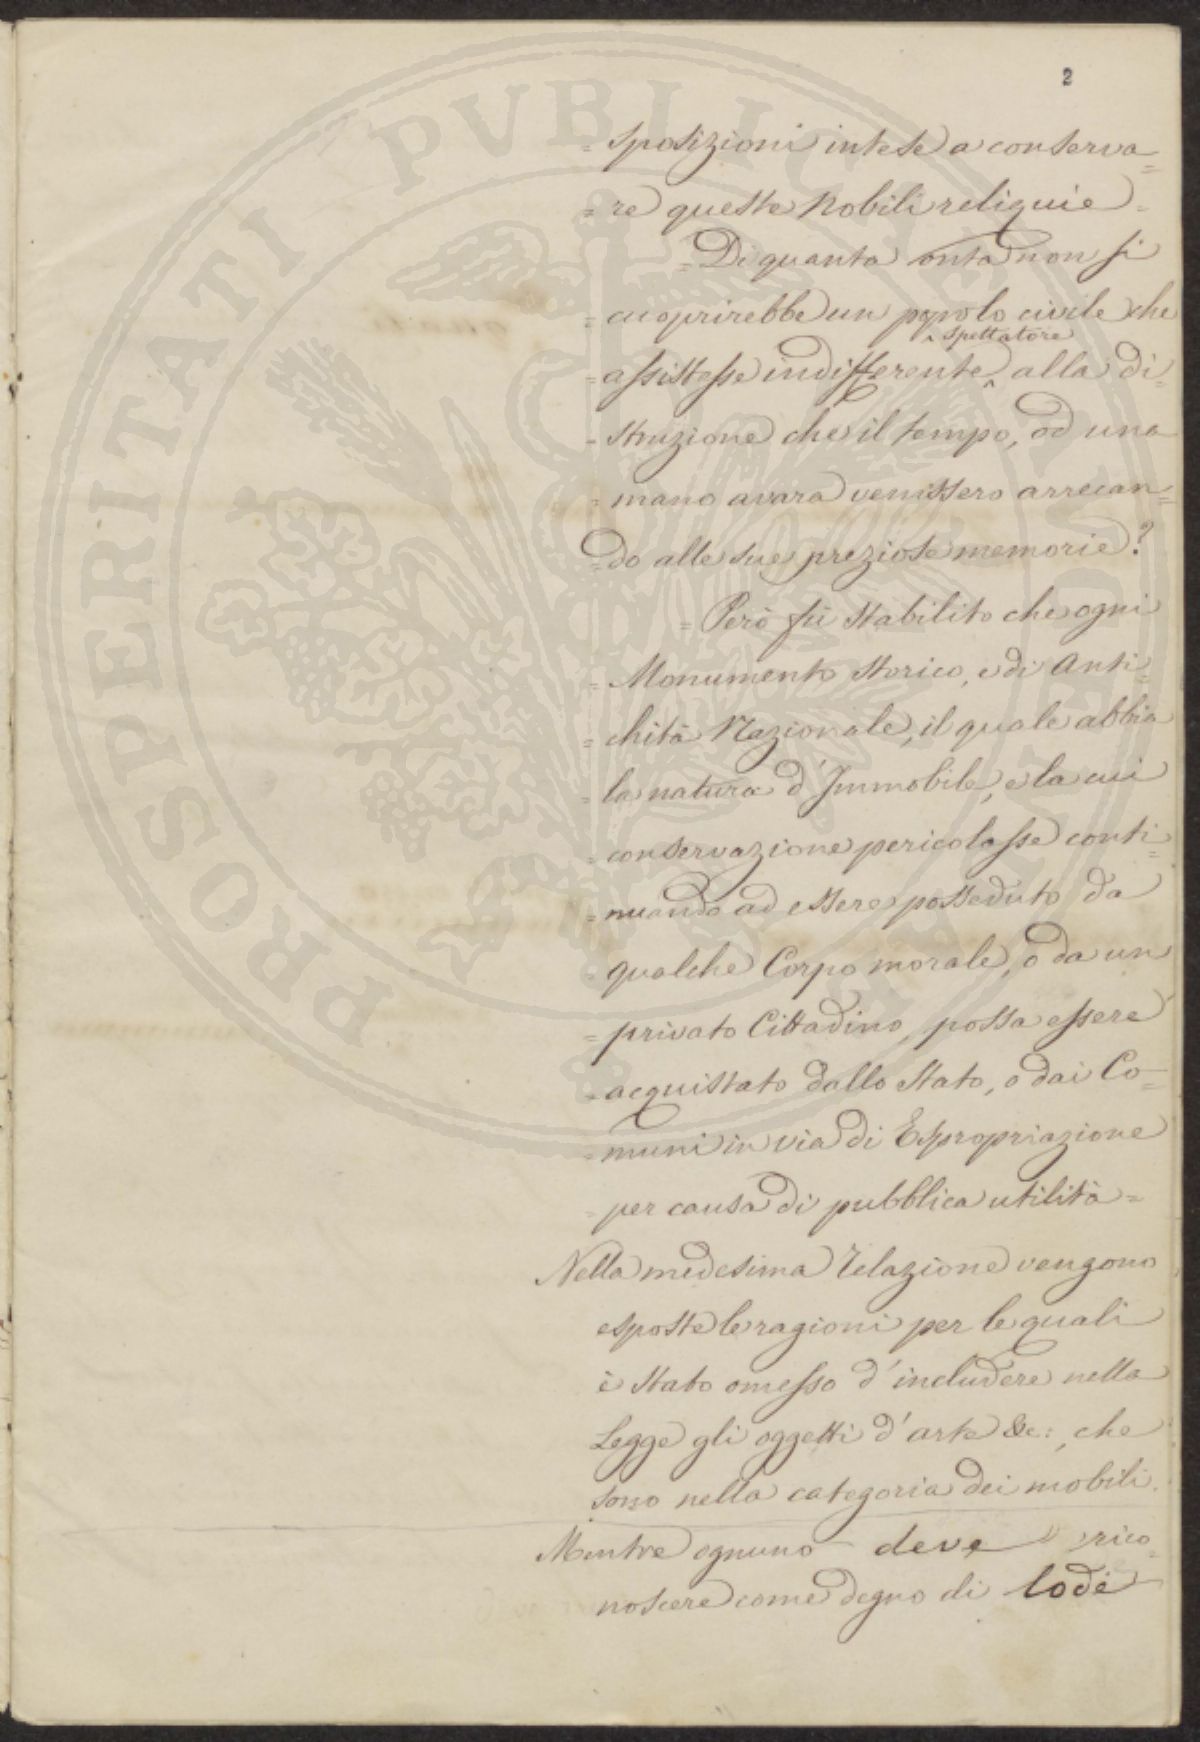 2
= sposizioni intese a conserva=
= re queste Nobili reliquie =
= Di quanta onta non si
= cuoprirebbe un popolo civile che
^ spettatore
= assistesse indifferente ^ alla di=
= struzione che il tempo, od una
= mano avara venissero arrecan=
= do alle sue preziose memorie?
= Però fù stabilito che ogni
= Monumento Storico, e di Anti=
= chità Nazionale, il quale abbia
= la natura d'Immobile, e la cui
= conservazione pericolasse conti=
= nuando ad essere posseduto da
= qualche Corpo morale, o da un
= privato Cittadino, possa essere
= acquistato dallo Stato, o dai Co=
= muni in via di Espropriazione
= per causa di pubblica utilità =
Nella medesima Relazione vengono
esposte le ragioni per le quali
è Stato omesso d'includere nella
Legge gli oggetti d'arte &c:, che
sono nella categoria dei mobili.
Mentre ognuno deve rico=
noscere come degno di lode
PROSPERITATI PVBLICAE